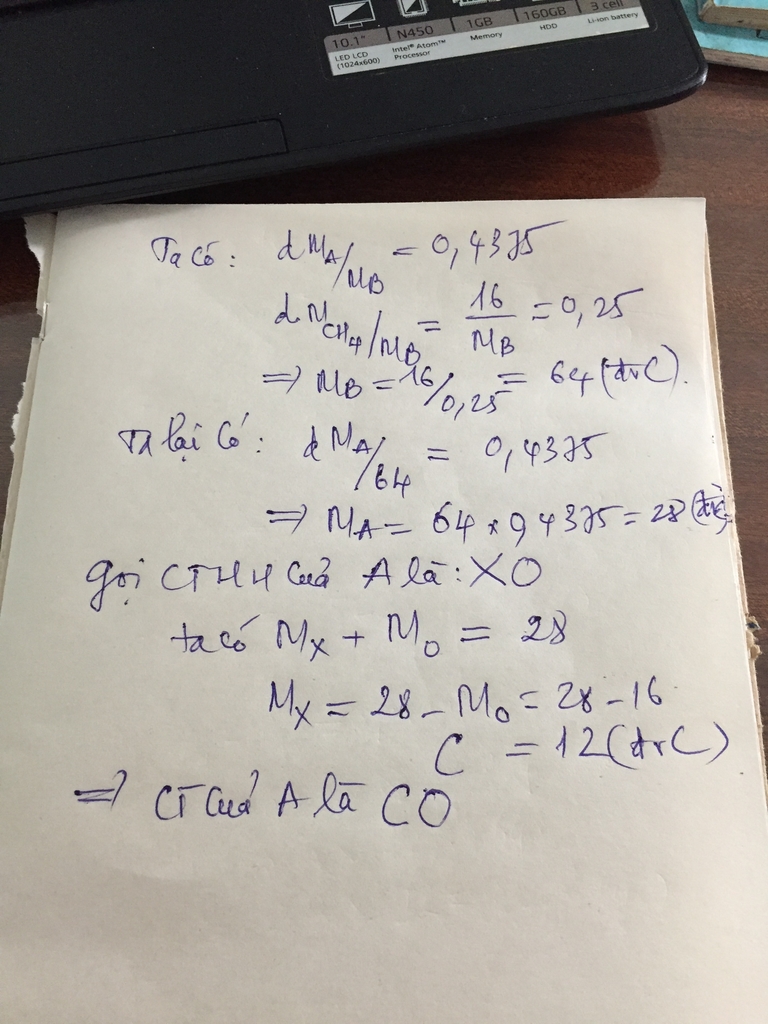 10.1"
LED LCD
(1024x600)
N450
Intel® Atom™
Processor
1GB
Memory
160GB
HDD
3 cell
Li-ion battery
Ta có: d MA/MB = 0,4375
d MCH4/MB = 16/MB = 0,25
=> MB = 16/0,25 = 64 (đvC).
Ta lại có: d MA/64 = 0,4375
=> MA = 64 x 0,4375 = 28 (đvC)
gọi CTHH của A là: XO
ta có MX + MO = 28
MX = 28 - MO = 28 - 16
C = 12 (đvC)
=> CT của A là CO